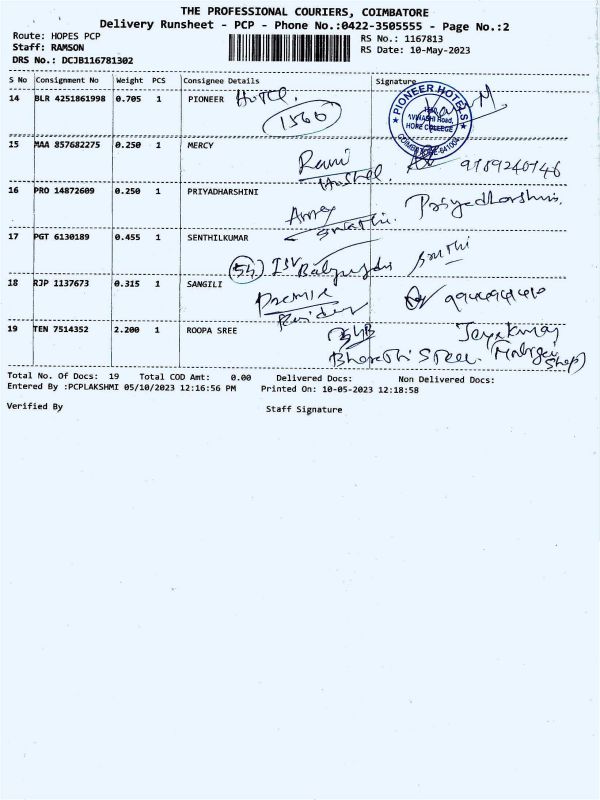 THE PROFESSIONAL COURIERS, COIMBATORE
Delivery Runsheet - PCP - Phone No.:0422-3505555 - Page No.:2
Route: HOPES PCP RS No.: 1167813
Staff: RAMSON RS Date: 10-May-2023
DRS No.: DCJB116781302
S No Consignment No Weight PCS Consignee Details Signature
14 BLR 4251861998 0.705 1 PIONEER Hotel.
1566
PIONEER HOTELS
AVINASHI Road,
HOPE COLLEGE
COIMBATORE-641004
15 MAA 857682275 0.250 1 MERCY
Hostel 9789240746
16 PRO 14872609 0.250 1 PRIYADHARSHINI
Priyadharshini.
17 PGT 6130189 0.455 1 SENTHILKUMAR
18 RJP 1137673 0.315 1 SANGILI
19 TEN 7514352 2.200 1 ROOPA SREE
Bharathi Street.
Shop)
Total No. Of Docs: 19 Total COD Amt: 0.00 Delivered Docs: Non Delivered Docs:
Entered By :PCPLAKSHMI 05/10/2023 12:16:56 PM Printed On: 10-05-2023 12:18:58
Verified By Staff Signature